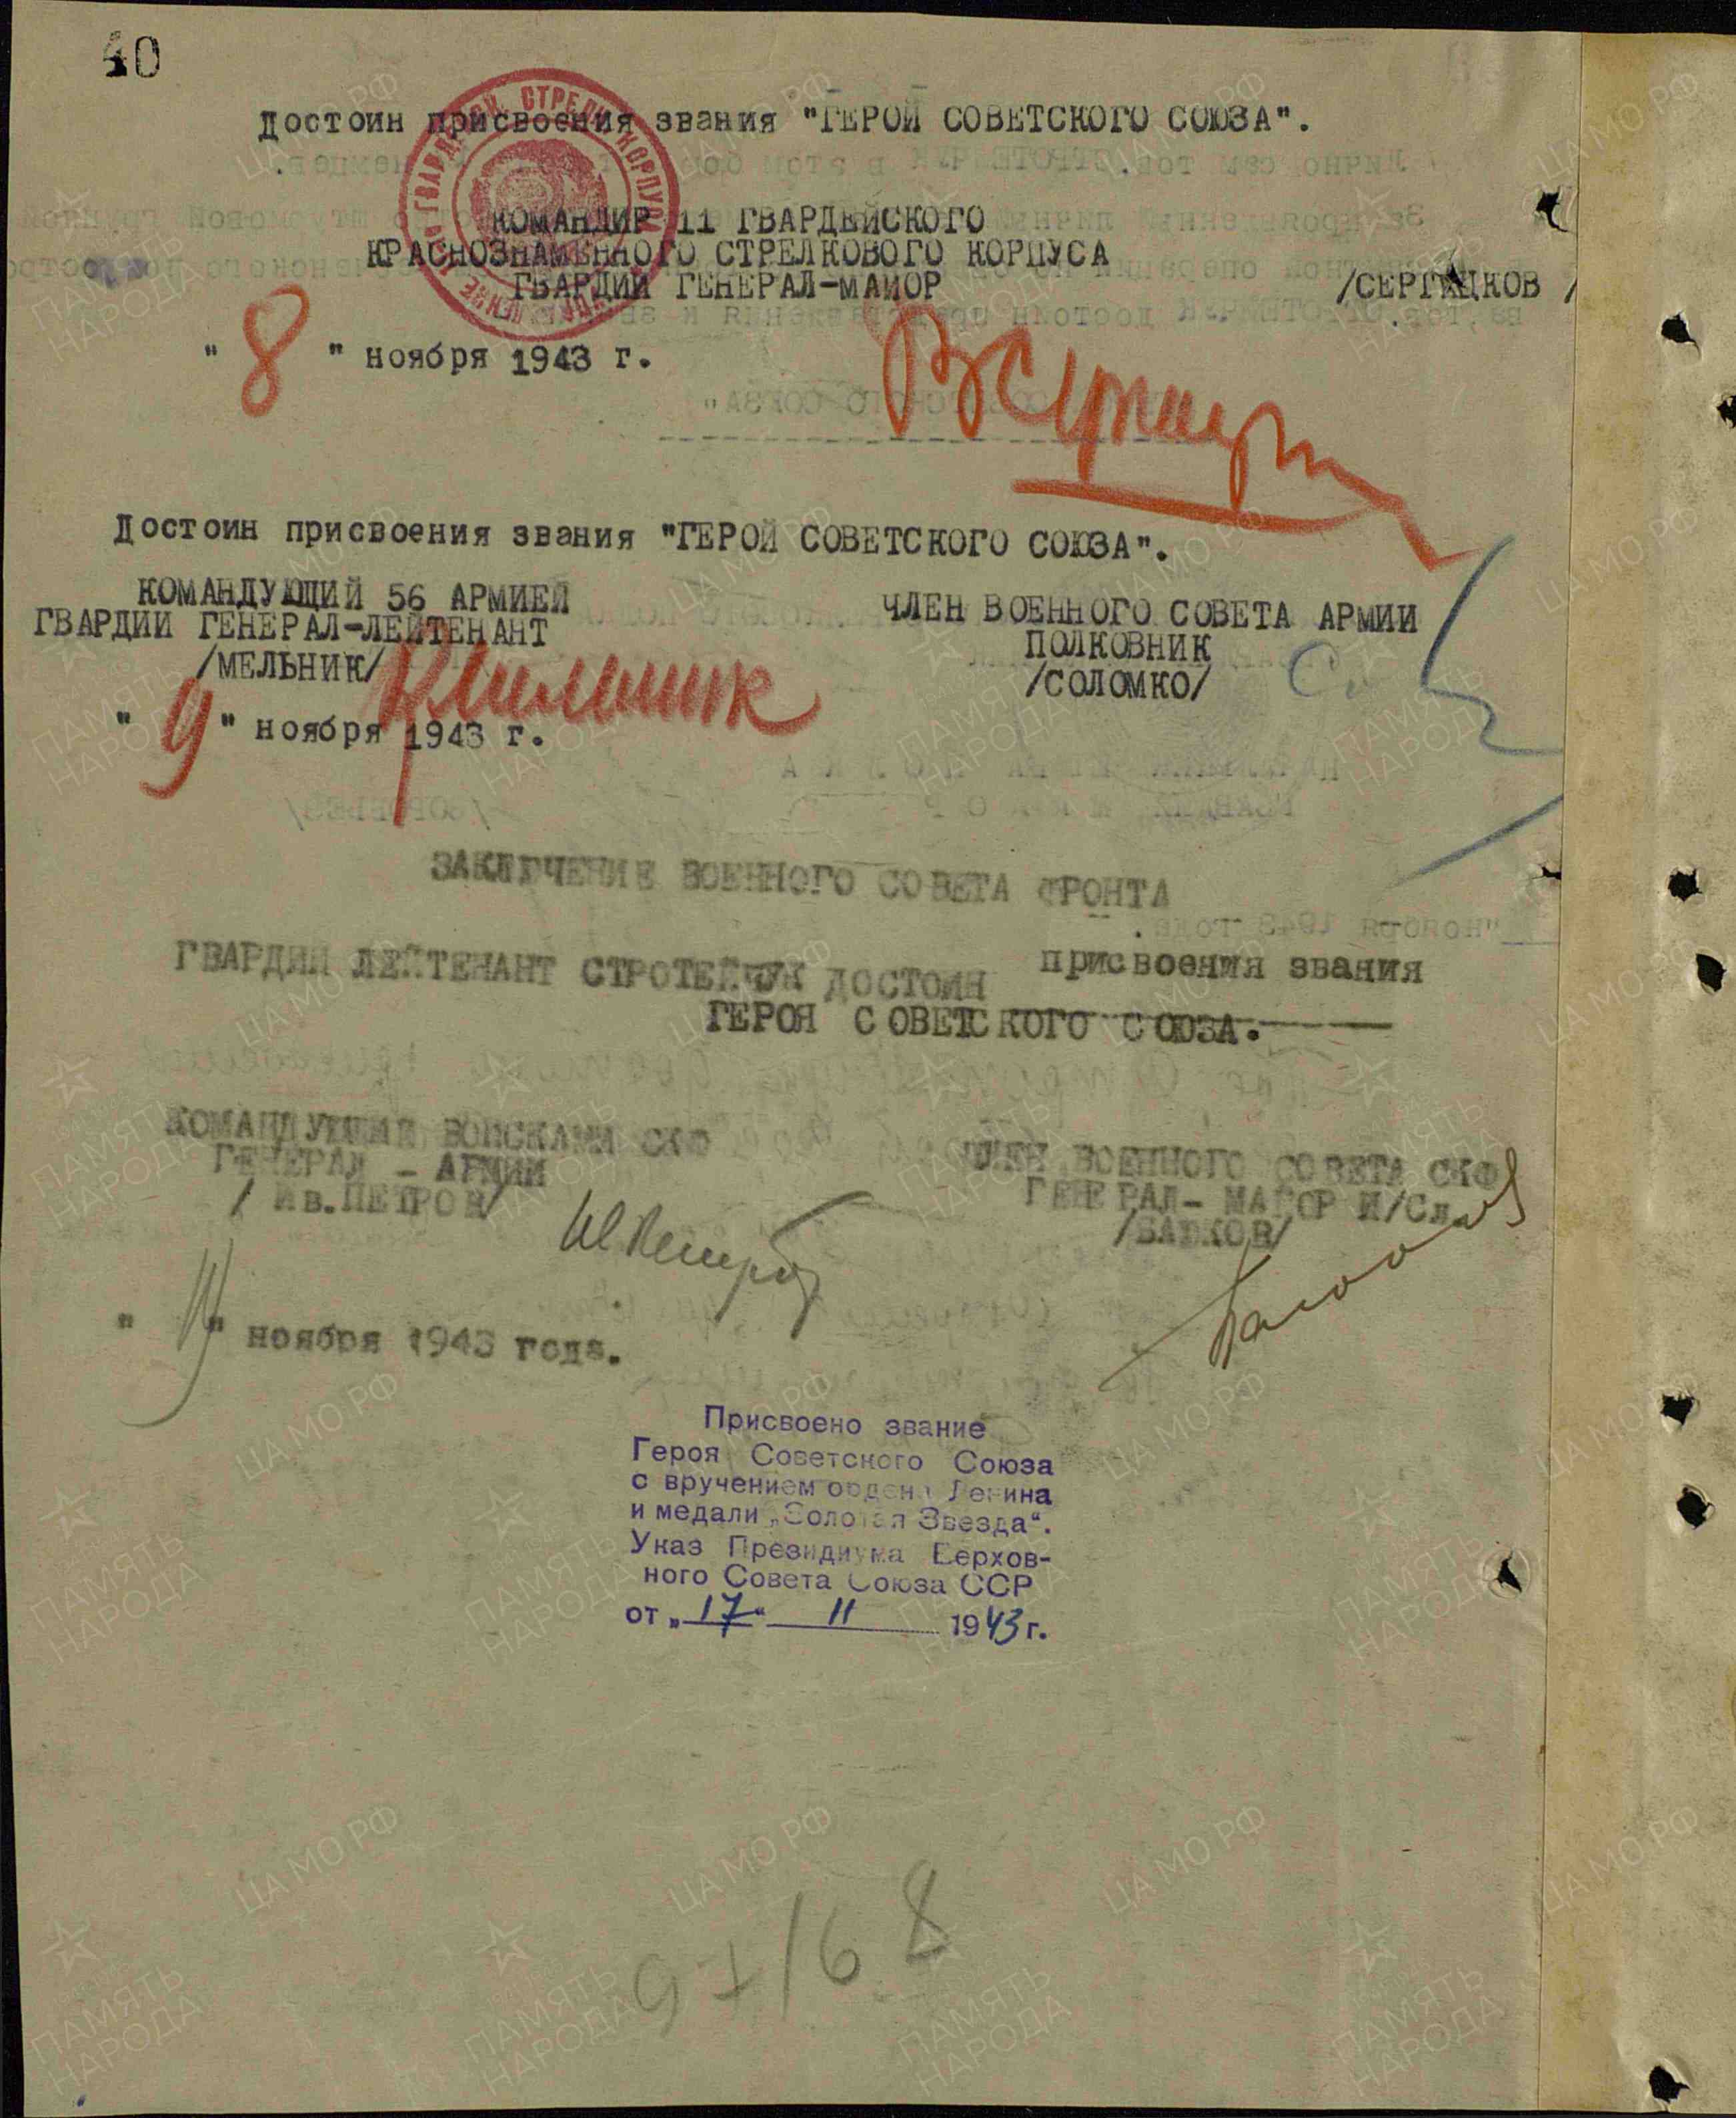 40
Достоин присвоения звания "ГЕРОЙ СОВЕТСКОГО СОЮЗА".
КОМАНДИР 11 ГВАРДЕЙСКОГО
КРАСНОЗНАМЕННОГО СТРЕЛКОВОГО КОРПУСА
ГВАРДИИ ГЕНЕРАЛ-МАЙОР /СЕРГАЦКОВ /
" 8 " ноября 1943 г.
Достоин присвоения звания "ГЕРОЙ СОВЕТСКОГО СОЮЗА".
КОМАНДУЮЩИЙ 56 АРМИЕЙ
ГВАРДИИ ГЕНЕРАЛ-ЛЕЙТЕНАНТ
/МЕЛЬНИК/ КМельник
" 9 " ноября 1943 г.
ЧЛЕН ВОЕННОГО СОВЕТА АРМИИ
ПОЛКОВНИК
/СОЛОМКО/
ЗАКЛЮЧЕНИЕ ВОЕННОГО СОВЕТА ФРОНТА
ГВАРДИИ ЛЕЙТЕНАНТ СТРОТЕЙЧУК ДОСТОИН присвоения звания
ГЕРОЯ СОВЕТСКОГО СОЮЗА.
КОМАНДУЮЩИЙ ВОЙСКАМИ СКФ
ГЕНЕРАЛ - АРМИИ
/ Ив.ПЕТРОВ/ ИПетров
ЧЛЕН ВОЕННОГО СОВЕТА СКФ
ГЕНЕРАЛ- МАЙОР И/Сл.
/БАЮКОВ/
" " ноября 1943 года.
Присвоено звание
Героя Советского Союза
с вручением ордена Ленина
и медали „Золотая Звезда“.
Указ Президиума Верхов-
ного Совета Союза ССР
от „17“ 11 1943 г.